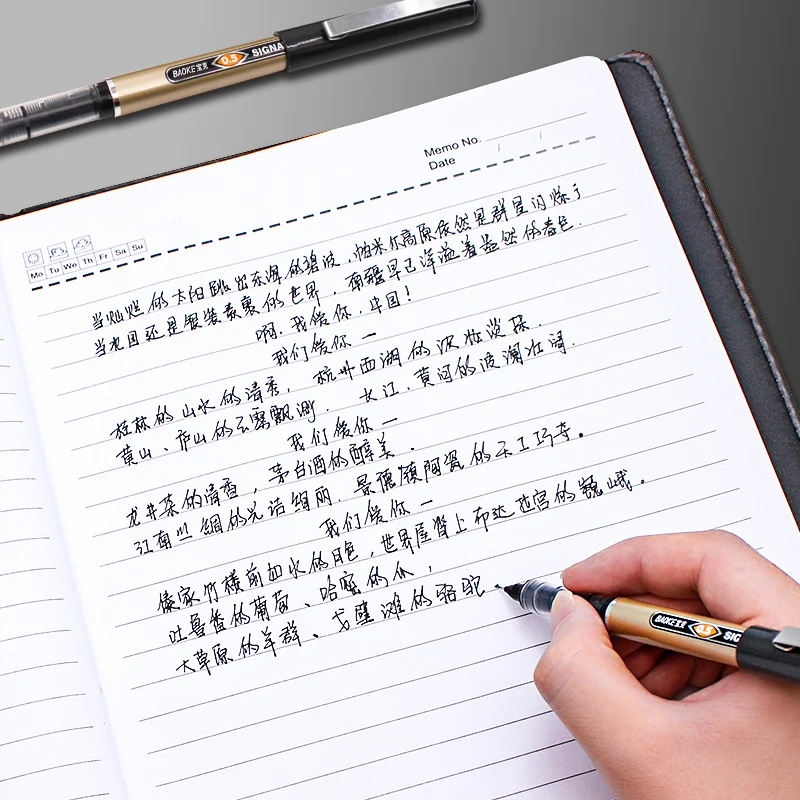 BAOKE宝克 0.5 SIGNA
Memo No.
Date / /
Mo Tu We Th Fr Sa Su
当灿烂的太阳跳出东海的碧波，帕米尔高原依然是群星闪烁；
当北国还是银装素裹的世界，南疆早已洋溢着盎然的春色．
啊，我爱你，中国！
我们爱你一
桂林的山水的清秀，杭州西湖的浓妆淡抹．
黄山、庐山的云雾飘渺．长江、黄河的波澜壮阔．
我们爱你一
龙井茶的清香，茅台酒的醇美．
江南丝绸的光洁绚丽．景德镇陶瓷的天工巧夺。
我们爱你一
傣家竹楼前如水的月色，世界屋脊上布达拉宫的巍峨．
吐鲁番的葡萄、哈密的瓜，
大草原的羊群、戈壁滩的骆驼．
BAOKE宝克 0.5 SIG